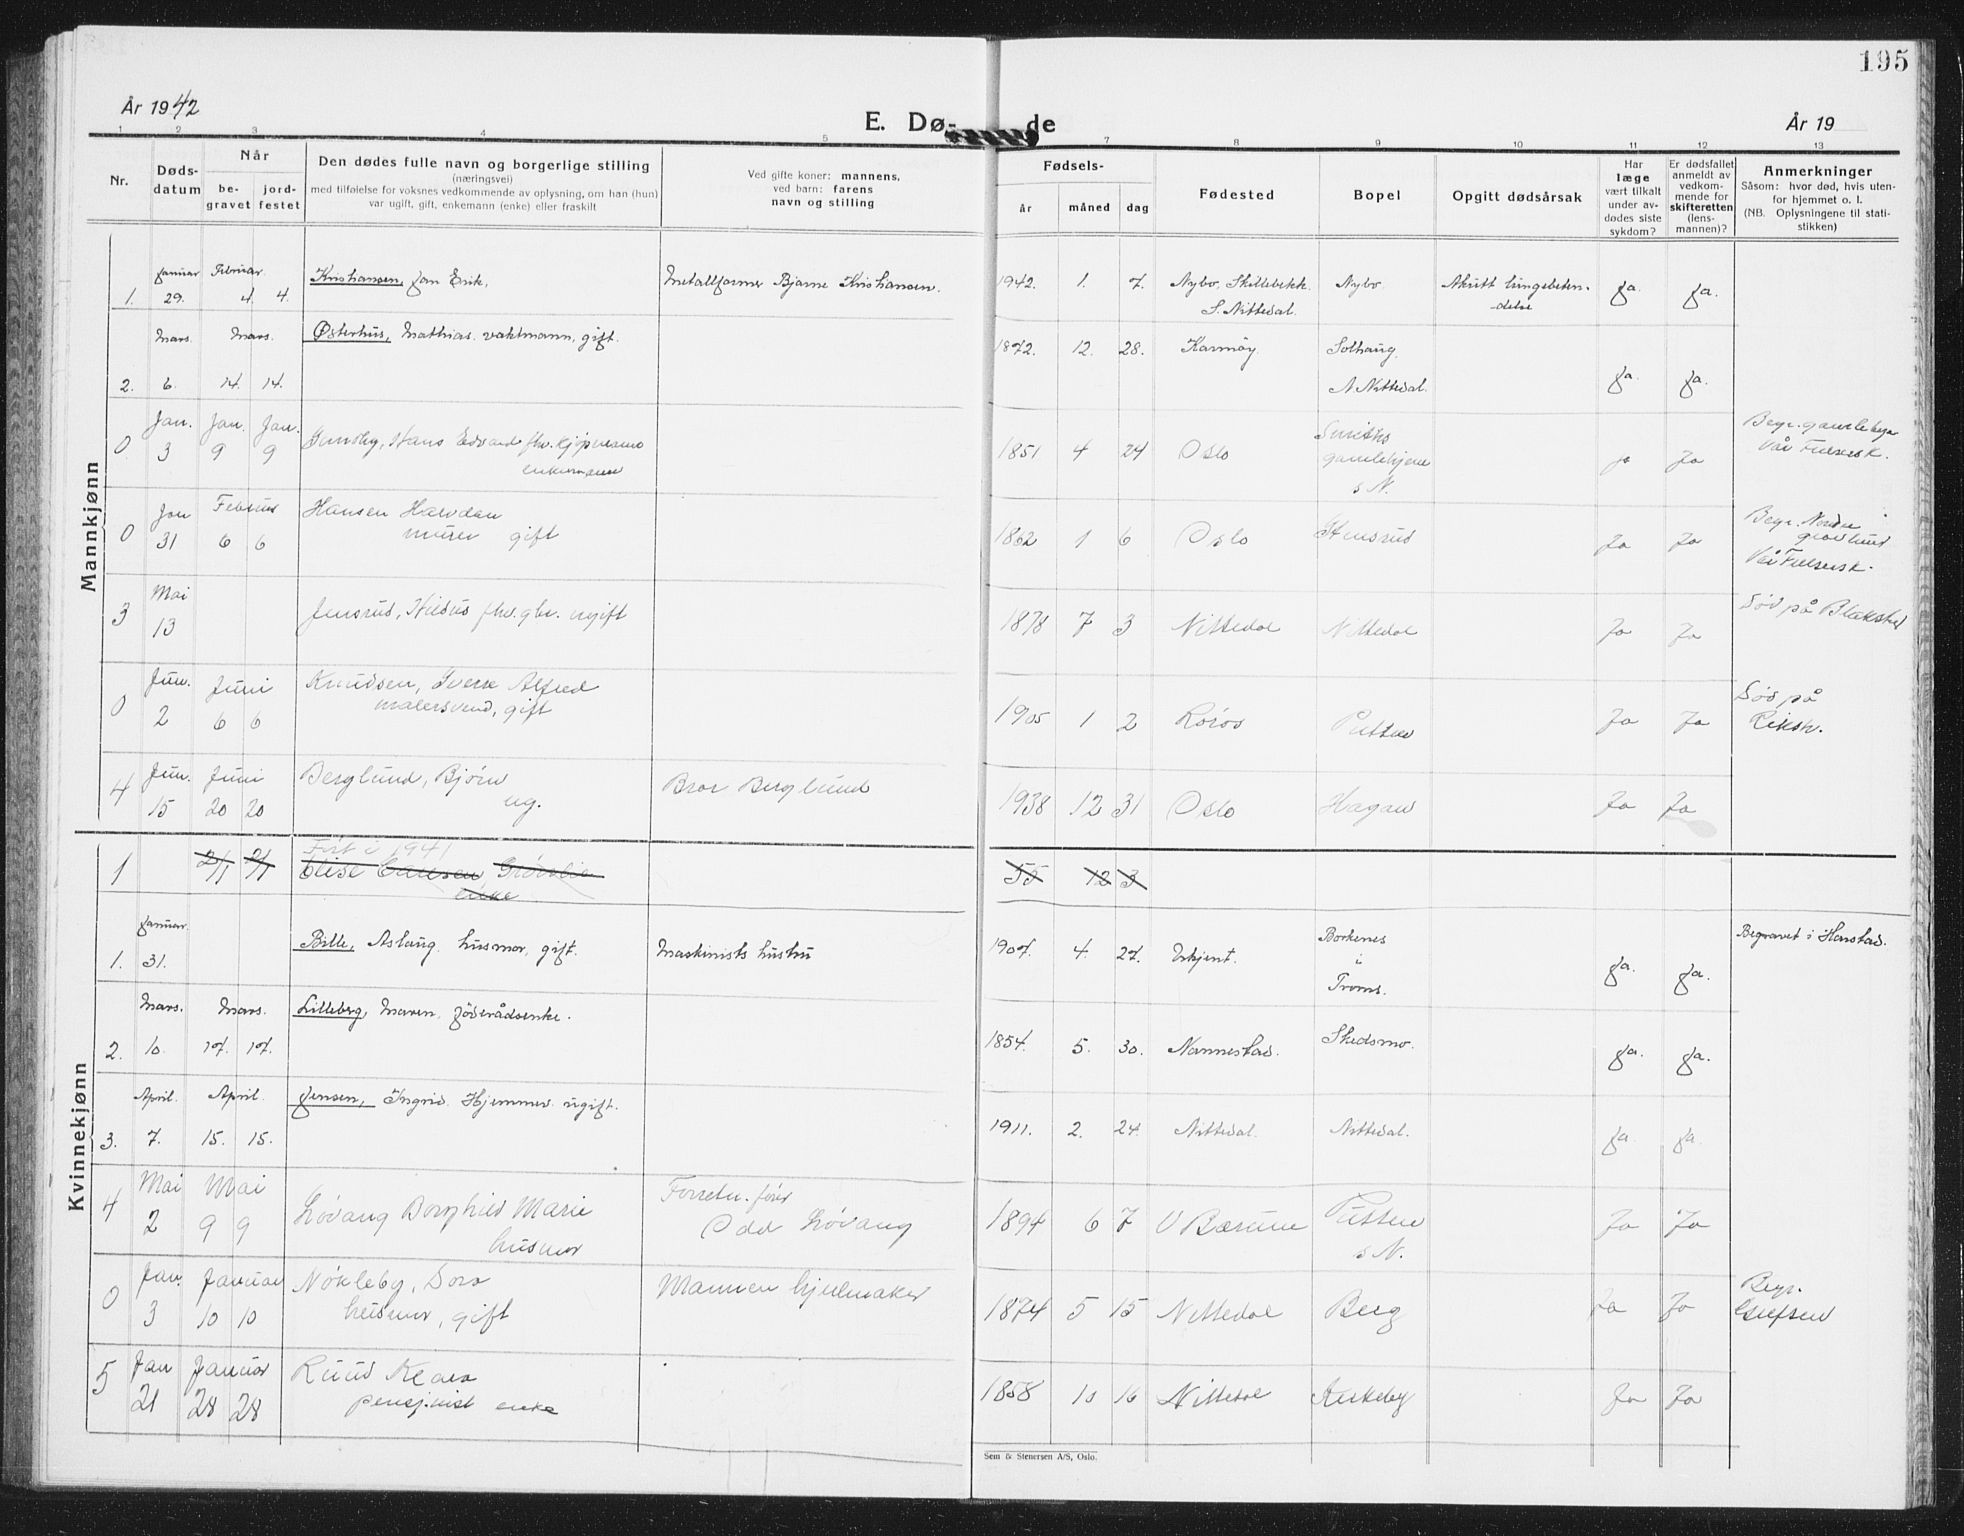 195
År 1942
E. Dø-
de
År 19
1 2 3 4 5 7 8 9 10 11 12 13
Nr.
Døds-
datum
Når
be-
gravet
jord-
festet
Den dødes fulle navn og borgerlige stilling
(næringsvei)
med tilføielse for voksnes vedkommende av oplysning, om han (hun)
var ugift, gift, enkemann (enke) eller fraskilt
Ved gifte koner: mannens,
ved barn: farens
navn og stilling
Fødsels-
år
måned
dag
Fødested
Bopel
Opgitt dødsårsak
Har
læge
vært tilkalt
under av-
dødes siste
sykdom?
Er dødsfallet
anmeldt av
vedkom-
mende for
skifteretten
(lens-
mannen)?
Anmerkninger
Såsom: hvor død, hvis uten-
for hjemmet o. l.
(NB. Oplysningene til stati-
stikken)
Mannkjønn
januar Februar. Kristiansen, Jan Erik. Metallformer Bjarne Kristiansen. 1942. 1. 7. Nybo, Skillebekk. Nybo. Akutt lungebeten-
1. 29. 4. 4. S. Nittedal. delse ja. ja.
Mars. Mars. Østerhus, Mathias. vaktmann, gift. 1872. 12. 28. Karmøy. Solhaug.
2. 6. 14. 14. N. Nittedal. ja. ja.
Jan. Jan. Jan. Hans Edvard fhv. kjøpmann 1851 4 24 Oslo Smiths Begr. gamlebyen
0 3 9 9 enkemann gamlehjem ja Ja Vår Frelsersk.
s N.
Jan Februar Hansen Harvdan 1862 1 6 Oslo Begr. Nordre
0 31 6 6 murer gift Ja Ja gravlund
Vår Frelsersk.
Mai Jensrud, Hildus fhv. gbr. ugift 1878 7 3 Nittedal Nittedal Ja Ja Død på Blakstad
3 13
Jun. Juni Knudsen, Sverre Alfred 1905 1 2 Røros Putten Ja Ja Død på
0 2 6 6 malersvend, gift Riksh.
Jun. Juni Berglund, Bjørn Bror Berglund 1938 12 31 Oslo Hagan Ja Ja
4 15 20 20 ug.
Kvinnekjønn
Ført i 1941
1 2/1 2/1 Elise 55 12 3
enke
januar. Bille, Aslaug. husmor, gift. Maskinists hustru 1907. 4. 27. Ukjent. Borkenes Begravet i Harstad.
1. 31. i ja. ja.
Troms.
Mars. Mars. Lilleberg, Maren. føderådsenke. 1854. 5. 30. Nannestad. Skedsmo.
2. 10. 17. 17. ja. ja.
April. April. Jensen, Ingrid. Hjemmev. ugift. 1911. 2. 24. Nittedal. Nittedal.
3. 7. 15. 15. ja. ja.
Mai Mai Løvang Borghild Marie Forretn. fører 1894 6 7 V Bærum Putten Ja Ja
4 2 9 9 husmor Odd Løvang s N.
Jan. Januar Nøkleby, Dora Mannen hjulmaker 1874 5 15 Nittedal Berg Ja Ja Begr.
0 3 10 10 husmor, gift Grefsen
Jan Januar Ruud Klara 1858 10 16 Nittedal Kirkeby Ja Ja
5 21 28 28 pensjonist enke
Sem & Stenersen A/S, Oslo.